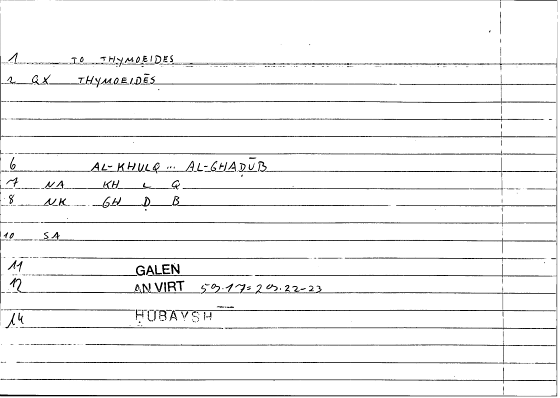 1 TO THYMOEIDES
2 QX THYMOEIDĒS
6 AL-KHULQ ... AL-GHAḌŪB
7 NA KH L Q
8 NK GH Ḍ B
10 SA
11 GALEN
12 AN VIRT 50.17=29.22-23
14 ḤUBAYSH